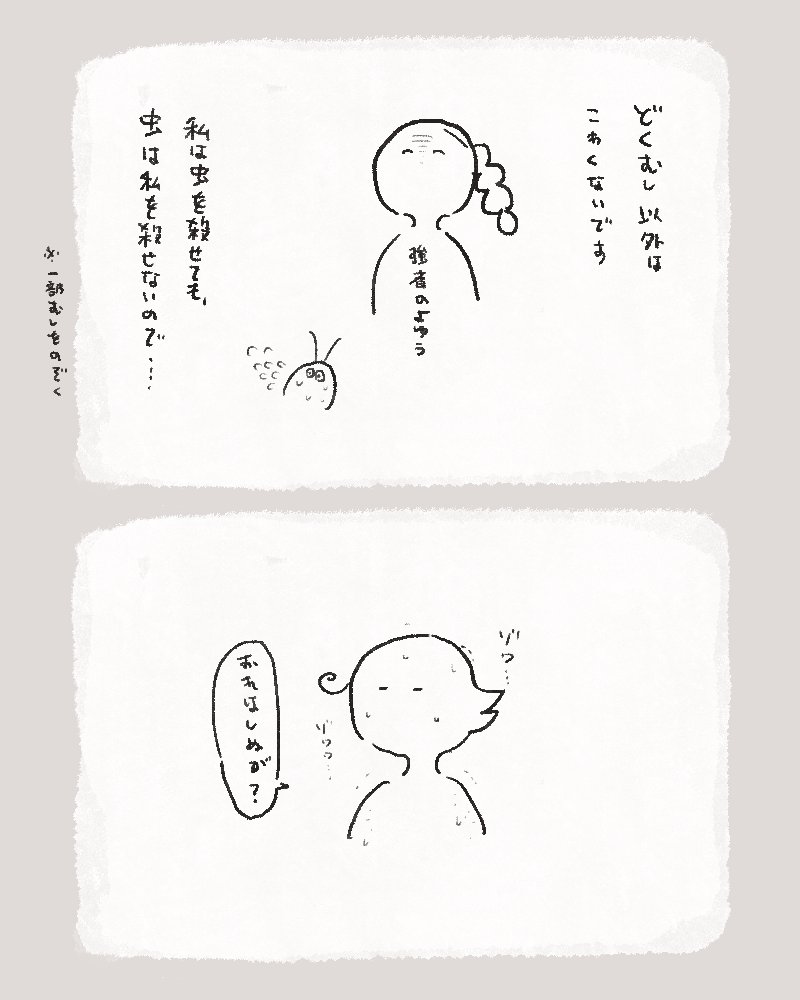 どくむし以外は
こわくないです
強者のよゆう
私は虫を殺せても、
虫は私を殺せないので…
※一部むしをのぞく
ゾワ…
おれはしぬが?
ゾワワ…